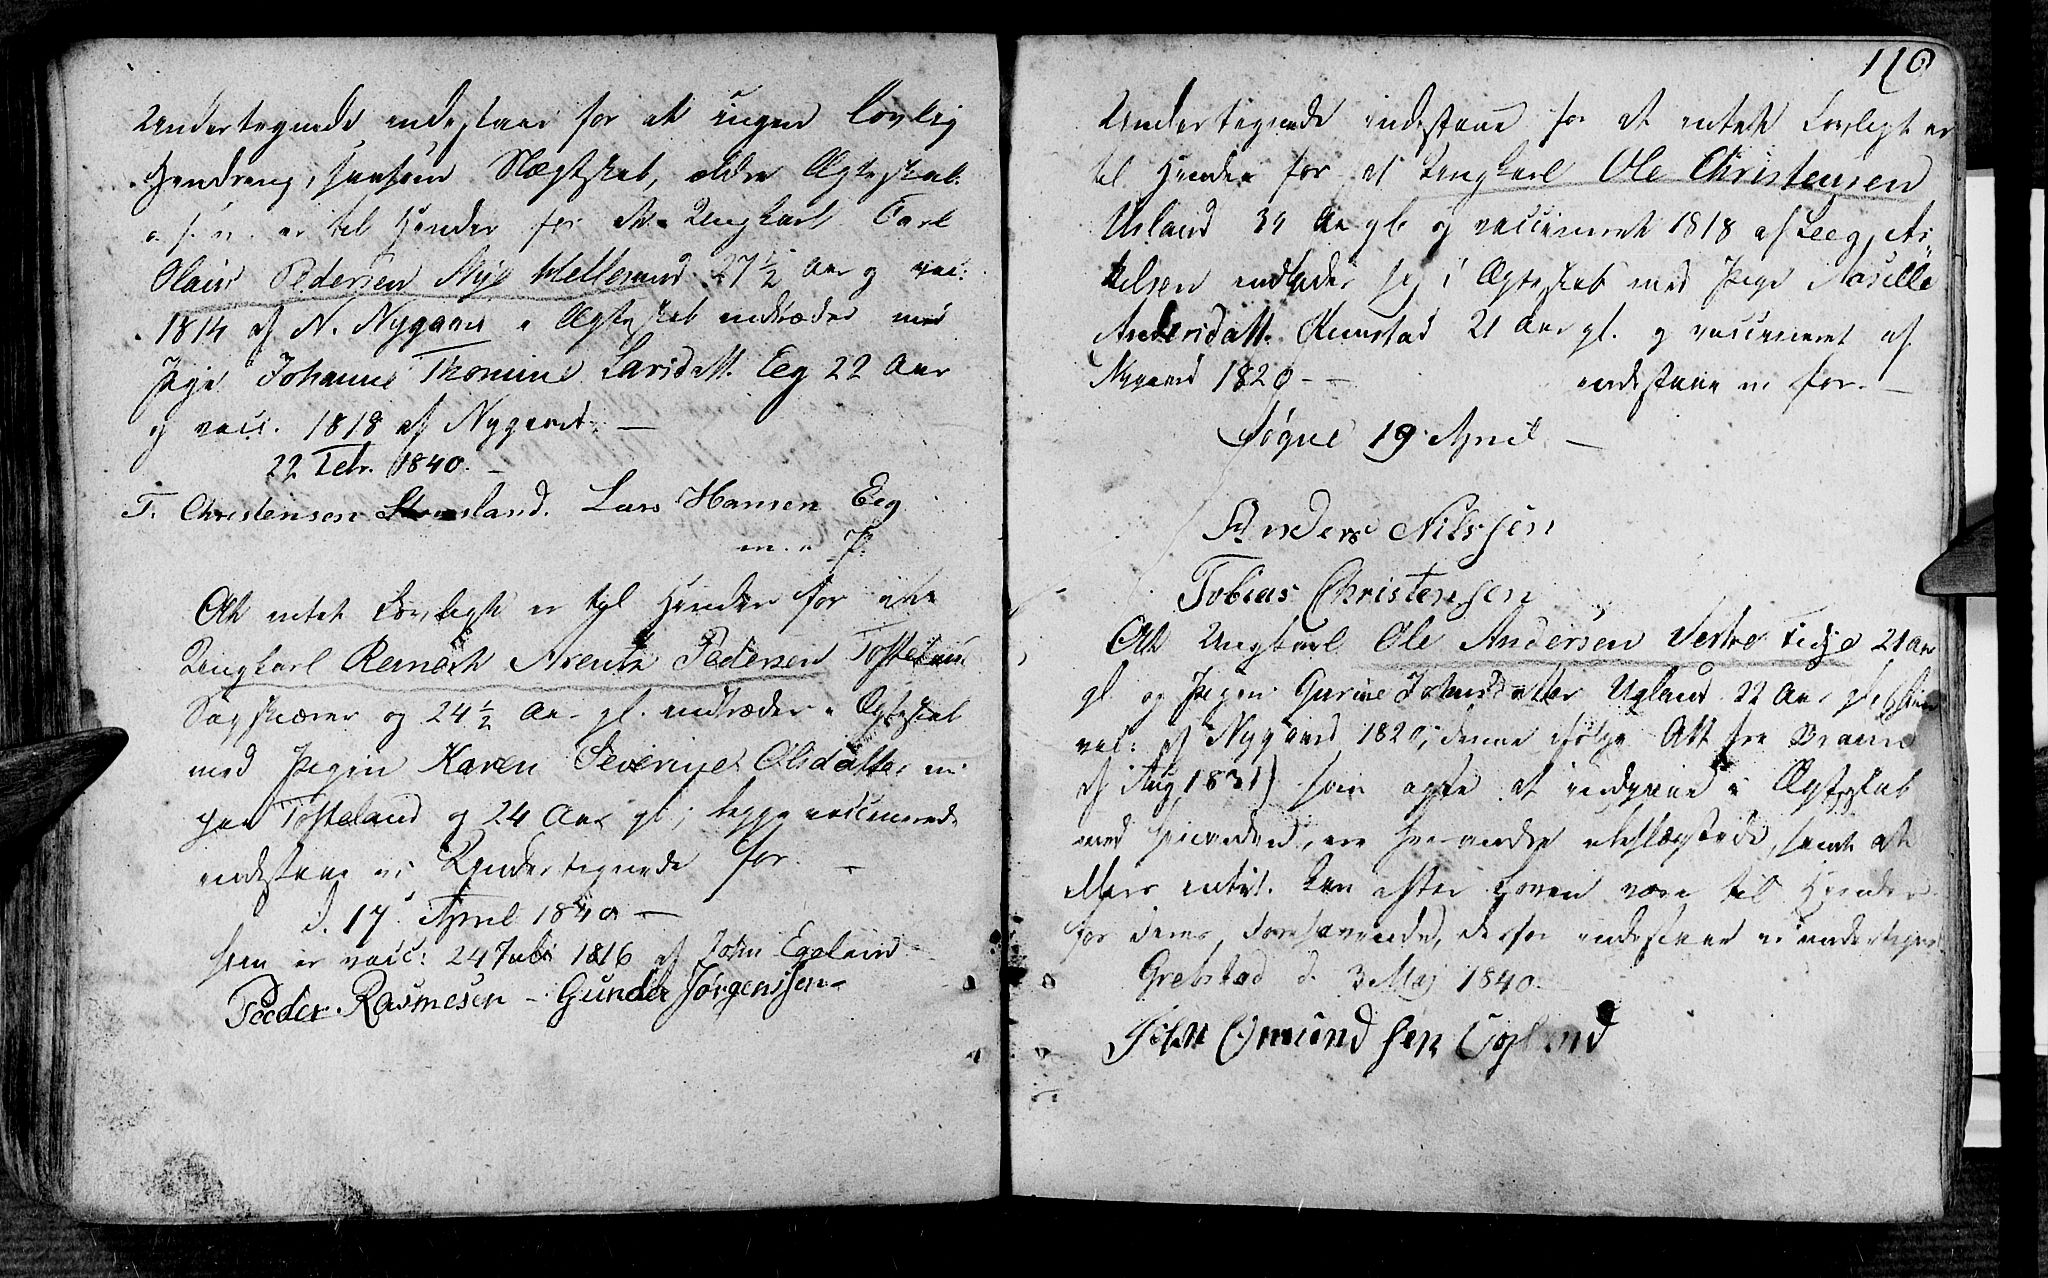 Undertegnede indestaar for at ingen lovlig
Hindring, saasom Slægtskab, ældre Ægteskab
o. s. v. er til Hinder for at Ungkarl Carl
Olaus Pedersen Mye Hellesund 27 1/2 Aar og vac:
1814 af N. Nygaard i Ægteskab indtræder med
Pige Johanne Thomine Larsdatt. Eeg 22 Aar
og vacc. 1818 af Nygaard. —
22 Febr. 1840. —
T. Christensen Stausland. Lars Hansen Eeg
m. i P.
At intet Lovligt er til Hinder for at
Ungkarl Reinert Arentz Pedersen Tofteland
Sogskærer og 24 1/2 Aar gl. indtræder i Ægteskab
med Pigen Karen Severine Olsdatter
paa Tofteland og 24 Aar gl.; begge vaccinerede
indestaae vi Undertegnede for. —
d. 17 April 1840 —
hun er vacc: 24 Juli 1816 af John Egeland
Peeder Rasmesen – Gunder Jørgenssen –
110
Undertegnede indestaae for at intet Lovligt er
til Hinder for at Ungkarl Ole Christensen
Usland 34 Aar gl. og vaccineret 1818 af Leeg, As-
kelsen indlader sig i Ægteskab med Pige Aaselle
Andersdatt. Repstad 21 Aar gl. og vaccineret af
Nygaard 1820 – – indestaae vi for. —
Søgne 19 April —
Anders Nilssen
Tobias Christensen
At Ungkarl Ole Andersen Vestre Tidje 21 Aar
gl. og Pigen Gurine Johnsdatter Ugland 22 Aar gl.
vac: af Nygaard 1820, denne ifølge Att fra
af Aug 1831) som agte at indgaae i Ægteskab
med hinanden, ere hverandre ubeslægtede, samt at
Mers intet kan efter Loven være til Hinder
for deres Forehavende, derfor indestaae vi undertegnede
Grebstad d. 3 Maj 1840
John Omundsen Ugland